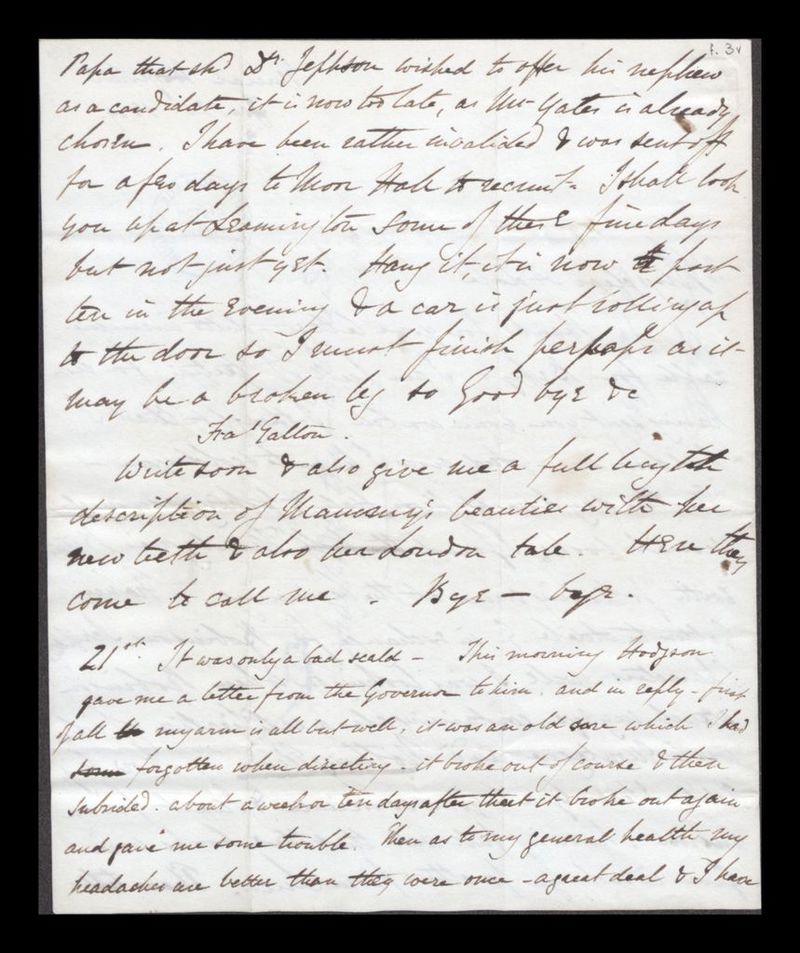 f. 3v
Papa that shd Dr. Jephson wished to offer his nephew
as a candidate, it is now too late, as Mr Yates is already
chosen. I have been rather invalided & was sent off
for a few days to Moor Hall to recruit. I shall look
you up at Leamington some of these fine days
but not just yet. Hang it, it is now past
ten in the evening & a car is just rolling up
to the door so I must finish perhaps as it
may be a broken leg so Good bye &c
Fras Galton.
Write soon & also give me a full length
description of Mammy's beauties with her
new teeth & also her London tale. Here they
come to call me. Bye — bye.
21st. It was only a bad scald — This morning Hodgson
gave me a letter from the Governor to him. and in reply - first
of all my arm is all but well, it was an old sore which I had
forgotten when directing. it broke out of course & then
subsided. about a week or ten days after that it broke out again
and gave me some trouble. Then as to my general health my
headaches are better than they were once - a great deal & I have